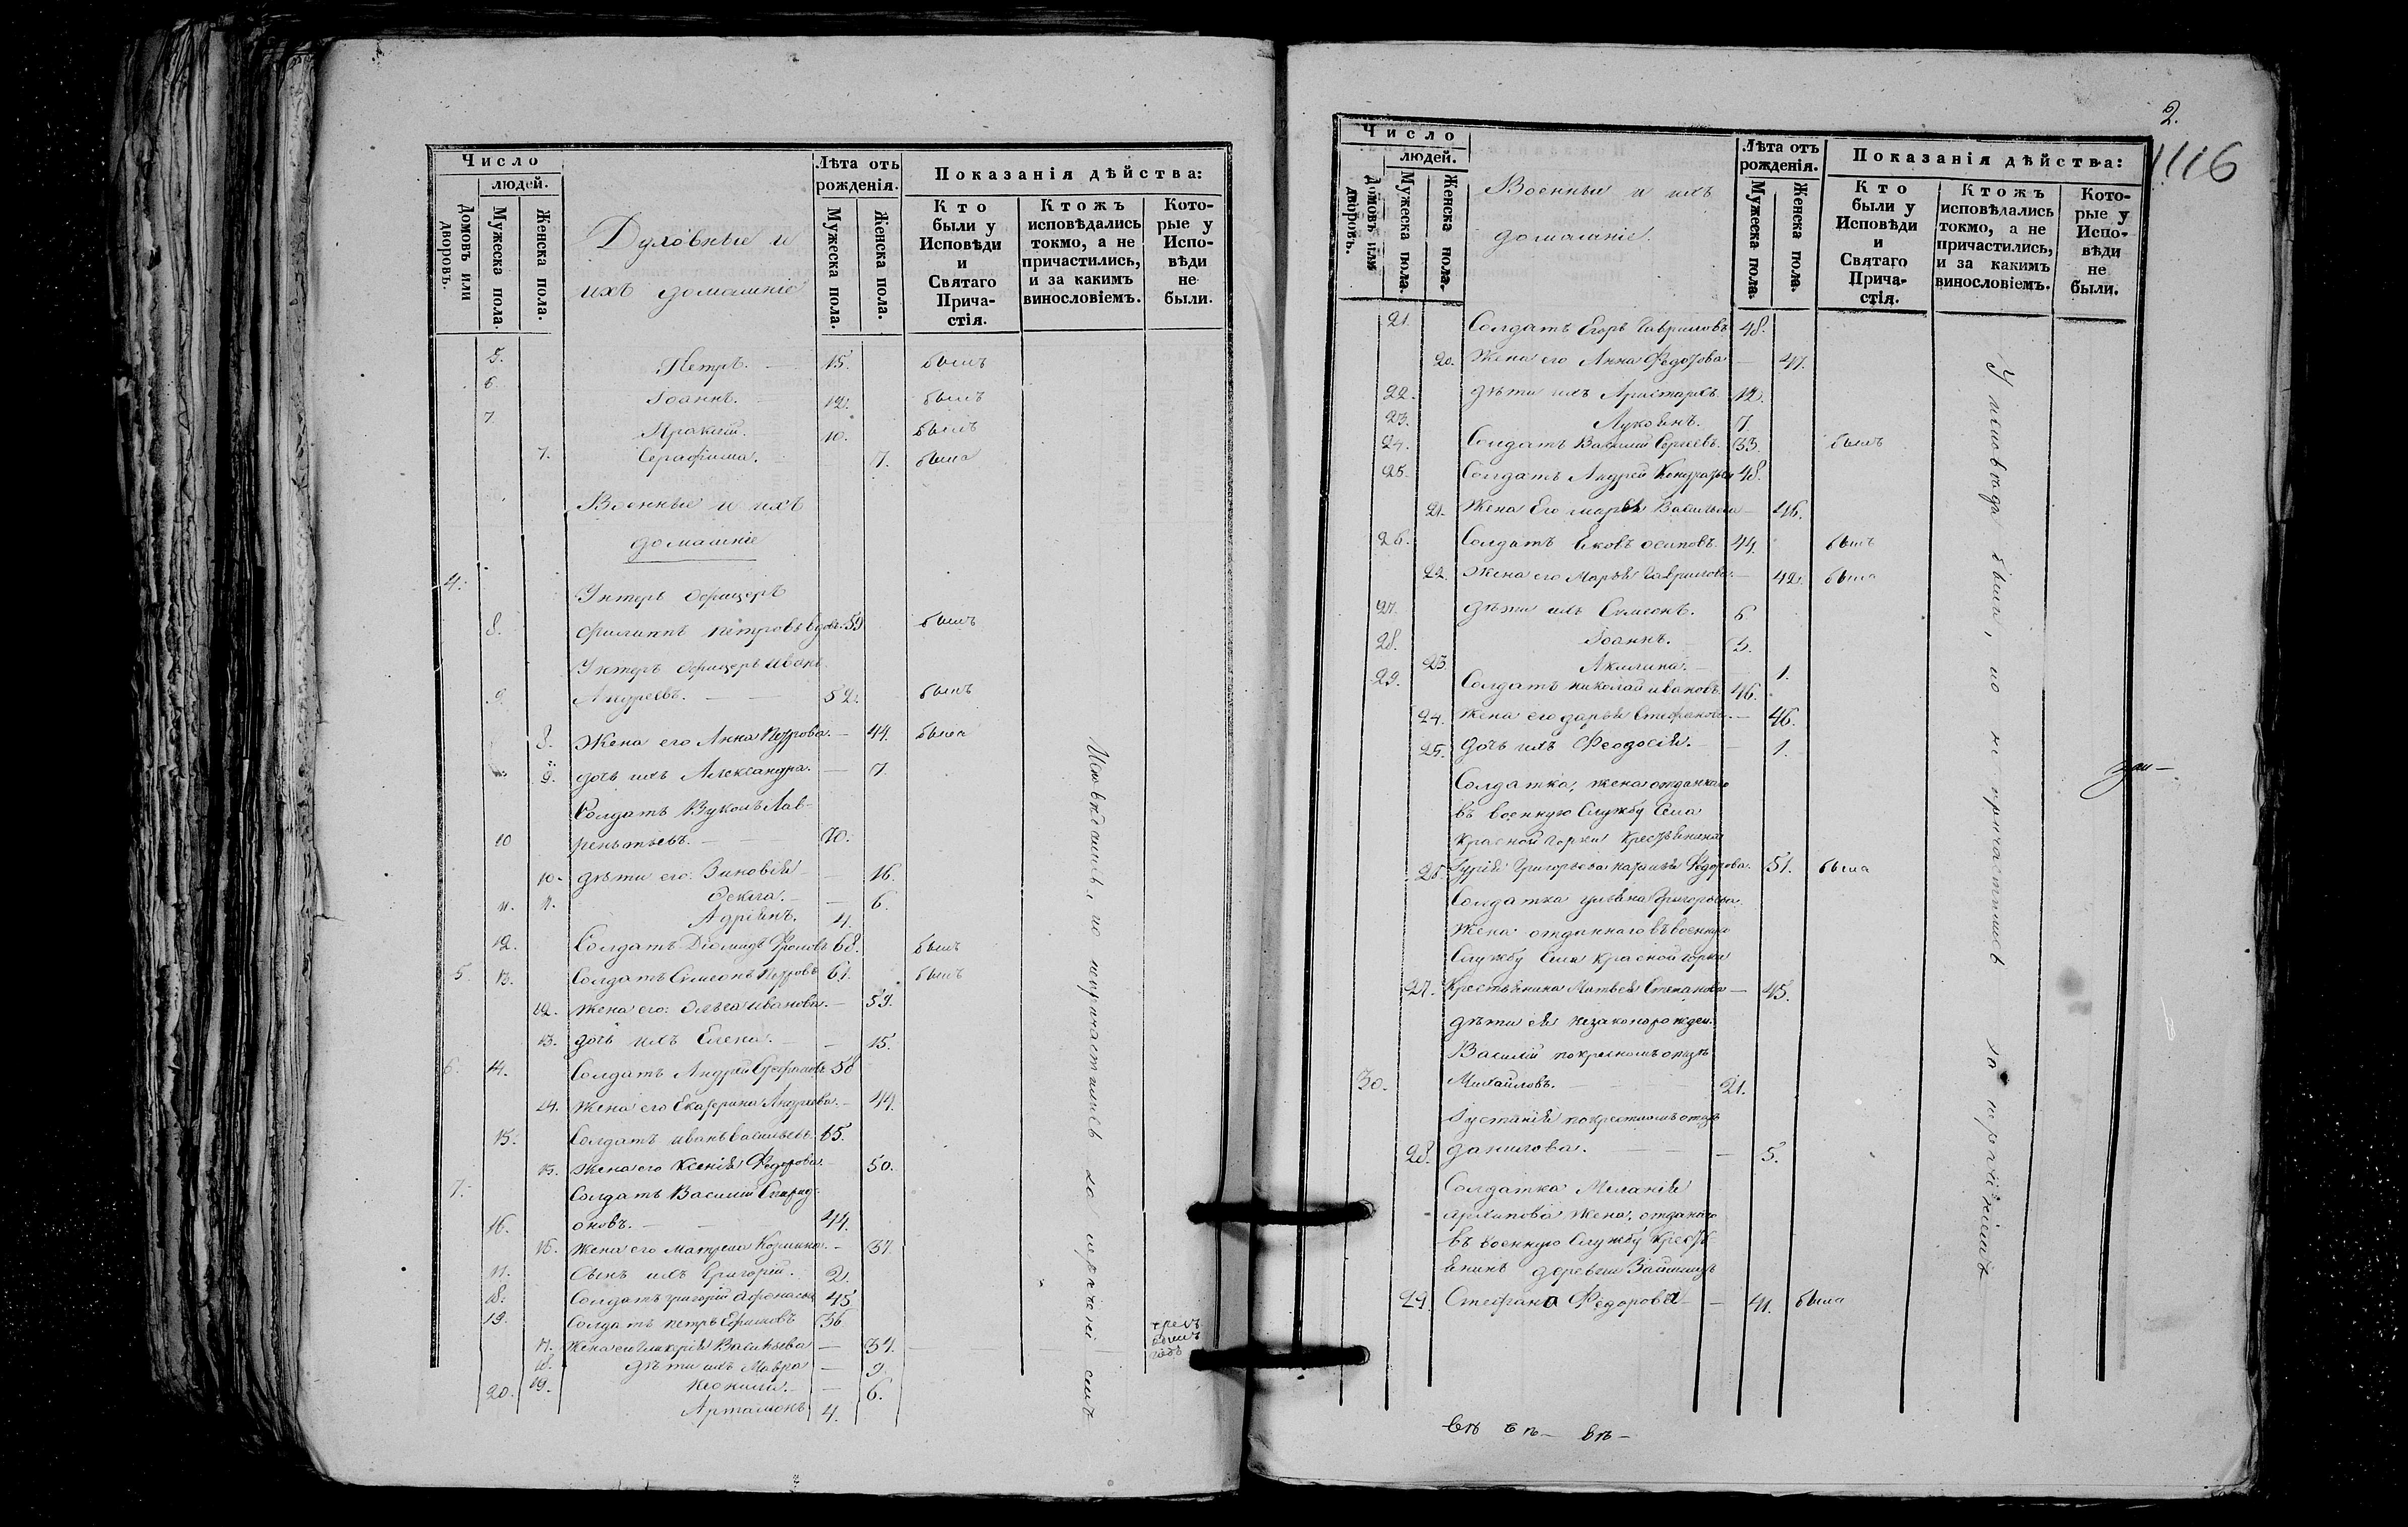 Число
людей.
Домовъ или дворовъ.
Мужеска пола.
Женска пола.
Духовные и
ихъ домашніе
Лѣта отъ рожденія.
Мужеска пола.
Женска пола.
Показанія дѣйства:
Кто были у Исповѣди и Святаго Причастія.
Ктожъ исповѣдались токмо, а не причастились, и за какимъ винословіемъ.
Которые у Исповѣди не были.
5. Петръ. — 15. былъ
6. Іоаннъ. 12. былъ
7. 10. былъ
7. Серафима. 7. была
Военные и ихъ
домашніе
4. Унтеръ Офицеръ
8. Филиппъ Петровъ вдов. 59 былъ
Унтеръ Офицеръ Иванъ
9. Андреевъ. — 52. былъ
8. Жена его Анна Петрова. — 44. была
9. дочь ихъ Александра. — 7.
Солдатъ Вуколъ Лав-
10 рентьевъ. — 70.
10. дѣти его: Зиновія — 16.
11. Ѳекла. — 6.
11. Адріянъ. 4.
12. Солдатъ Діомидъ Фроловъ 68. былъ
5. 13. Солдатъ Симеонъ Петровъ 61. былъ
12. Жена его: Ольга Иванова. — 59.
13. дочь ихъ Елена. — 15.
6. 14. Солдатъ Андрей 58
14. Жена его Екатерина Андреева. — 44.
15. Солдатъ Иванъ Васильевъ 65.
15. Жена его Ксенія Федорова 50.
7. Солдатъ Василій Спирид-
16. оновъ. — 44.
16. Жена его Матрена Козмина. — 37.
17. Сынъ ихъ Григорій. 2.
18. Солдатъ Григорій Афонасьев 45
19. Солдатъ Петръ Ефимовъ 36
17. Жена его Гликерія Васильева — 34.
18. дѣти ихъ Мавра — 9.
19. — 6.
20. Артамонъ 4.
Исповѣдались, но непричастились за нерач
2.
1116
Число
людей.
Домовъ или дворовъ.
Мужеска пола.
Женска пола.
Военные и ихъ
домашніе.
Лѣта отъ рожденія.
Мужеска пола.
Женска пола.
Показанія дѣйства:
Кто были у Исповѣди и Святаго Причастія.
Ктожъ исповѣдались токмо, а не причастились, и за какимъ винословіемъ.
Которые у Исповѣди не были.
21. Солдатъ Егоръ Гавриловъ 48.
20. Жена его Анна Федотова — 47.
22. дѣти ихъ Аристархъ. 12.
23. 7.
24. Солдатъ Василій Сергеевъ. 33 былъ
25. Солдатъ Андрей Кондратьев 48.
21. Жена Его Марѳа Васильева — 46.
26. Солдатъ Яковъ Осиповъ. 44. былъ
22. Жена его Марья Гаврилова. — 42. была
27. дѣти ихъ Симеонъ. 6
28. Іоаннъ. 3.
23 Акилина. — 1.
29. Солдатъ Николай Ивановъ. 46.
24. Жена его Дарья Стефанова. — 46.
25. дочь ихъ Феодосія. — 1.
Солдатка, жена отданнаго
въ военную Службу Села
Красной Горки Крестьянина
26. Григорьева Наталья Федорова. 51. была
Солдатка Ульяна Григорьева
Жена отданнаго въ военную
Службу Села Красной Горки
27. Крестьянина Матвея Степанова — 45.
дѣти ея незаконорожден.
Василій по крестномъ отцѣ
30. Михайловъ. — 21.
Іустинія по крестномъ отцѣ
28. Данилова. — 5.
Солдатка Меланія
Архипова жена, отданнаго
въ военную Службу Кресть-
янина деревни
29. Стефана Федорова — 41. была
У исповѣди были, но не причастились за нераченіемъ